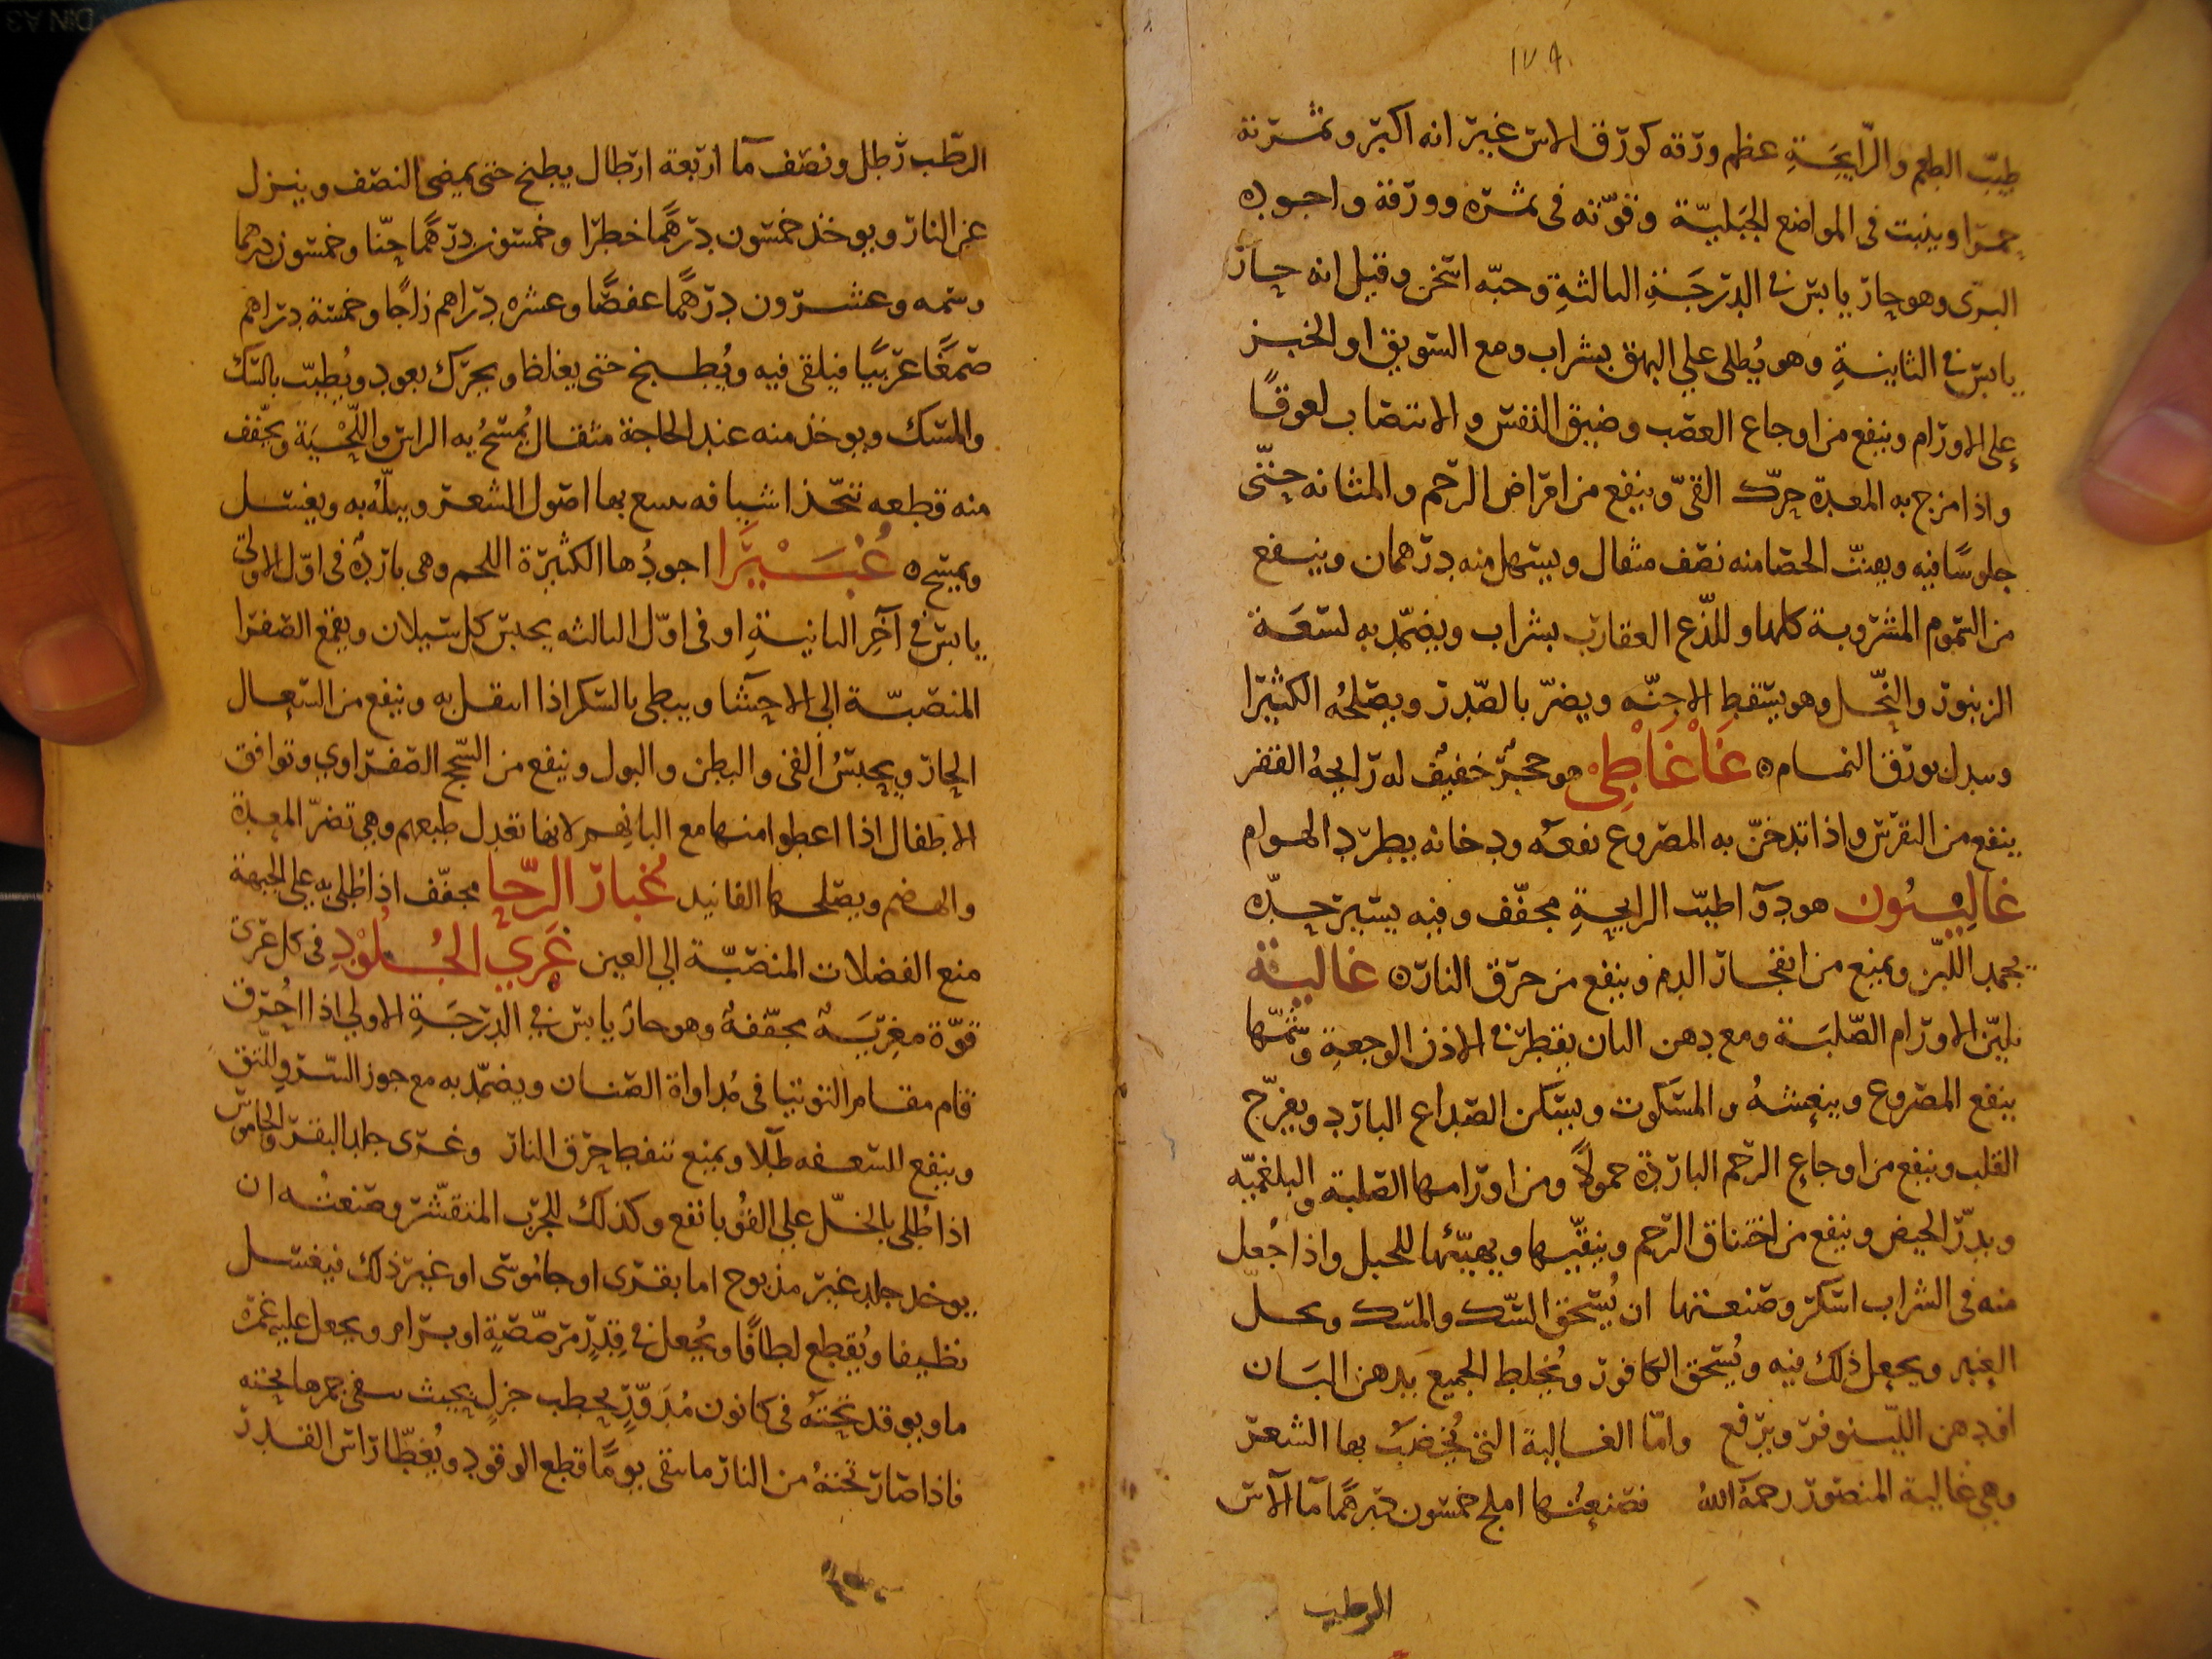 ١٧٨
طيب الطعم والرايحة عظم ورقه كورق الاس غير انه اكبر وثمرته
حمرا وينبت فى المواضع الجبلية وقوته فى ثمره وورقه واجوده
البرى وهو حار يابس فى الدرجة الثالثة وحبه اسخن وقيل انه حار
يابس فى الثانية وهو يُطلى على البهق بشراب ومع السويق او الخبز
على الاورام وينفع من اوجاع العصب وضيق النفس والانتصاب لعوقًا
واذا مزج به المعدة حرك القىّ وينفع من امراض الرحم والمثانه حتّى
جلوسًا فيه ويفتت الحصا منه نصف مثقال ويسهل منه درهمان وينفع
من السموم المشروبة كلها وللذع العقارب بشراب ويضمّد به لسعة
الزنبور والنحل وهو يسقط الاجنّه ويضرّ بالصّدر ويصلحُه الكثيرا
وبدله بورق النمام ه غَاغَاطِى هو حجرٌ خفيفٌ له رايحةُ القفر
ينفع من النقرس واذا تدخنّ به المصروع نفعه ودخانه يطرد الهوام
غاليسُون هو دوآ طيب الرايحةِ مجفّف وفيه يسير حدّه
يجمد اللبن ويمنع من انفجار الدم وينفع من حرق النار ه غالية
تليّن الاورام الصّلبَة ومع دهن البان يقطر فى الاذن الوجعةِ وشمّها
ينفع المصروع وينعشهُ والمسكوت ويسكن الصداع البارد ويفرّح
القلب وينفع من اوجاع الرحم الباردة حمولًا ومن اورامها الصلبة والبلغميّه
ويدرّ الحيض وينفع من اختناق الرحم وينقّيها ويهيّئها للحبل واذا جُعل
منه فى الشراب اسكر وصنعتها ان يُسحق السّك والمسك ويحلّ
العنبر ويجعل ذلك فيه ويُسحق الكافور ويُخلط الجميع بدهن البَان
او دهن اللينوفر ويرفع وامّا الغالية التى يُخضبُ بها الشعر
وهى غالية المنصور رحمه الله فصنعتها املج خمسون درهمًا مآ الآس
الرطب
الرطب رطل ونصف مآ اربعة ارطال يطبخ حتى يمضى النصف وينزل
عن النار ويوخذ خمسون درهمًا خطرا وخمسون درهمًا حنّا وخمسون درهما
وسمه وعشرون درهمًا عفصًا وعشره دراهم زاجًا وخمسة دراهم
صمغًا عربيًا فيلقى فيه ويُطبخ حتى يغلظ ويحرّك بعود ويُطيبّ بالسّك
والمسك ويوخذ منه عند الحاجة مثقال يُمسحُ به الراس واللّحْيَة ويجّفف
منه قطعه تتخّذ اشيافه بها اصول الشعر ويبلّه به ويغسل
ويمسح ه غُبَسْيَرَا اجودُها الكثيرة اللحم وهى باردةٌ فى اوّل الاولى
يابس فى آخرِ الثانيةِ او فى اوّل الثالثه يحبس كل سيلان ويقمع الصفرا
المنصبّة الى الاحشا ويبطى بالسكر اذا انتقل به وينفع من السعال
الحار ويحبسُ القى والبطن والبول وينفع من السّحج الصفراوي وتوافق
الاطفال اذا اعطوا منها مع البانهم لانها تعدل طبعهم وهى تضرّ المعدة
والهضم ويصلحها الفانيد غبار الرّحا مجفّف اذا طلى به على الجبهة
منع الفضلات المنصبّة الى العين غَرِي الجُلُودِ فى كل غرى
قوّة مغريَةٌ مجفّفةٌ وهو حار يابس فى الدرجَةِ الاولى اذا احُرق
قام مقام التوتيا فى مُداواة الصنان ويضمّد به مع جوز السرو للفتق
وينفع للسعفه طلا ويمنع تنفط حرق النار وغرى جلد البقر والجاموس
اذا طُلى بالخلّ على القُوبا نفع وكذلك للجرب المتقشّر وصنعتُه ان
يوخذ جلد غير مذبوح اما بقرى او جاموسى او غير ذلك فيغسل
نظيفا ويُقطع لطافًا ويُجعل فى قِدرٍ مرصّصةٍ او برام ويجعل عليه غمره
ما ويوقد تحتهُ فى كانون مُدَوّرٍ بحطب جزلٍ بحيث جمرها تحته
فاذا صارت تحتهُ من النار ما يبقى يومًا قطع الوقود ويُغطّا راس القدر